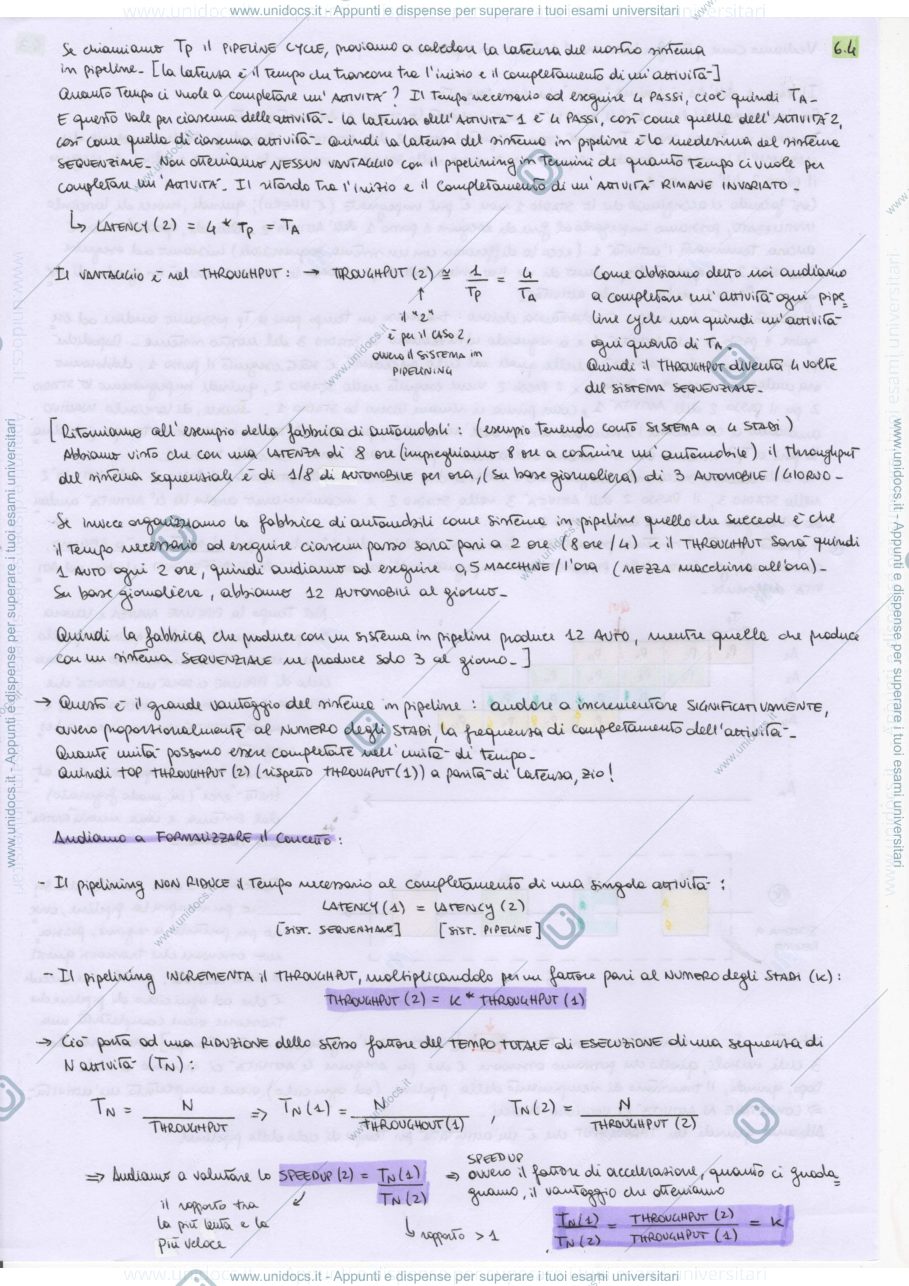 www.unidocs.it - Appunti e dispense per superare i tuoi esami universitari
6.4
Se chiamiamo Tp il PIPELINE CYCLE, proviamo a calcolare la latenza del nostro sistema
in pipeline. [la latenza è il tempo che trascorre tra l'inizio e il completamento di un'attività]
Quanto tempo ci vuole a completare un'ATTIVITÀ? Il tempo necessario ad eseguire 4 PASSI, cioè quindi TA.
E questo vale per ciascuna delle attività. La latenza dell'ATTIVITÀ 1 è 4 PASSI, così come quella dell'ATTIVITÀ 2,
così come quella di ciascuna attività. Quindi la latenza del sistema in pipeline è la medesima del sistema
SEQUENZIALE. Non otteniamo NESSUN VANTAGGIO con il pipelining in termini di quanto tempo ci vuole per
completare un'ATTIVITÀ. Il ritardo tra l'inizio e il completamento di un'ATTIVITÀ RIMANE INVARIATO.
↳ LATENCY (2) = 4 * Tp = TA
Il VANTAGGIO è nel THROUGHPUT: → TROUGHPUT (2) ≅ 1/Tp = 4/TA
↑
il "2"
è per il CASO 2,
ovvero il SISTEMA in
PIPELINING
Come abbiamo detto noi andiamo
a completare un'attività ogni pipe=
line cycle non quindi un'attività
ogni quarto di TA.
Quindi il THROUGHPUT diventa 4 volte
del SISTEMA SEQUENZIALE.
[Ritorniamo all'esempio della fabbrica di automobili: (esempio tenendo conto SISTEMA a 4 STADI)
Abbiamo visto che con una LATENZA di 8 ore (impieghiamo 8 ore a costruire un'automobile) il throughput
del sistema sequenziale è di 1/8 di AUTOMOBILE per ora, (su base giornaliera) di 3 AUTOMOBILE / GIORNO.
Se invece organizziamo la fabbrica di automobili come sistema in pipeline quello che succede è che
il tempo necessario ad eseguire ciascun passo sarà pari a 2 ore (8 ore / 4) e il THROUGHPUT sarà quindi
1 AUTO ogni 2 ore, quindi andiamo ad eseguire 0,5 MACCHINE / l'ora (MEZZA macchina all'ora).
Su base giornaliera, abbiamo 12 AUTOMOBILI al giorno.
Quindi la fabbrica che produce con un sistema in pipeline produce 12 AUTO, mentre quella che produce
con un sistema SEQUENZIALE ne produce solo 3 al giorno.]
→ Questo è il grande vantaggio del sistema in pipeline: andare a incrementare SIGNIFICATIVAMENTE,
ovvero proporzionalmente al NUMERO degli STADI, la frequenza di completamento dell'attività.
Quante unità possono essere completate nell'unità di tempo.
Quindi TOP THROUGHPUT (2) (rispetto THROUGHPUT (1)) a parità di latenza, zio!
Andiamo a FORMALIZZARE il concetto:
- Il pipelining NON RIDUCE il tempo necessario al completamento di una singola attività:
LATENCY (1) = LATENCY (2)
[SIST. SEQUENZIALE] [SIST. PIPELINE]
- Il pipelining INCREMENTA il THROUGHPUT, moltiplicandolo per un fattore pari al NUMERO degli STADI (K):
THROUGHPUT (2) = K * THROUGHPUT (1)
→ Ciò porta ad una RIDUZIONE dello stesso fattore del TEMPO TOTALE di ESECUZIONE di una sequenza di
N attività (TN):
TN = N / THROUGHPUT => TN (1) = N / THROUGHOUT (1) TN (2) = N / THROUGHPUT (2)
=> Andiamo a valutare lo SPEEDUP (2) = TN (1) / TN (2)
il rapporto tra
la più lenta e la
più veloce
↳ rapporto > 1
SPEEDUP
=> ovvero il fattore di accelerazione, quanto ci guada=
gniamo, il vantaggio che otteniamo
TN (1) / TN (2) = THROUGHPUT (2) / THROUGHPUT (1) = K
www.unidocs.it - Appunti e dispense per superare i tuoi esami universitari